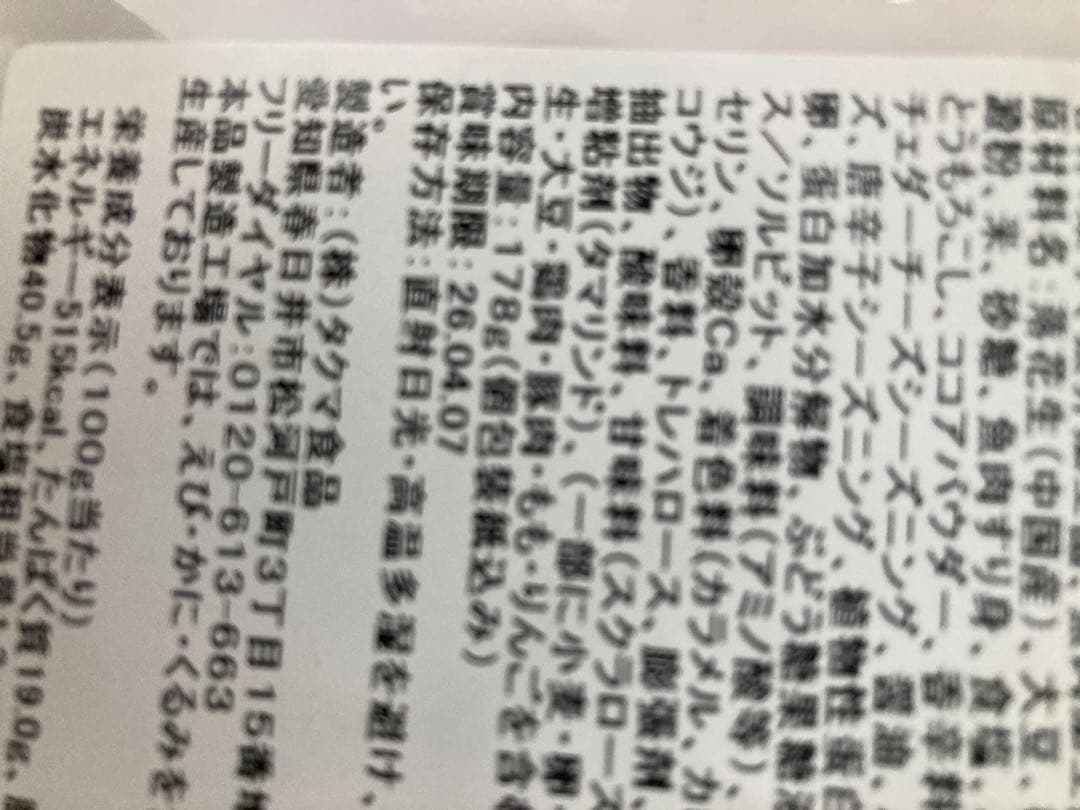 原材料名：落花生（中国産）、大豆、
澱粉、米、砂糖、魚肉すり身、食塩、
とうもろこし、ココアパウダー、香辛料
チェダーチーズシーズニング、醤油、
ズ、唐辛子シーズニング、植物性蛋白
卵、蛋白加水分解物、ぶどう糖果糖液
ス／ソルビット、調味料（アミノ酸等）、
セリン、卵殻Ca、着色料（カラメル、カ
コウジ）、香料、トレハロース、膨張剤、
抽出物、酸味料、甘味料（スクラロース
増粘剤（タマリンド）、（一部に小麦・卵・
生・大豆・鶏肉・豚肉・もも・りんごを含
内容量：178g（個包装紙込み）
賞味期限：26.04.07
保存方法：直射日光・高温多湿を避け
い。
製造者：（株）タクマ食品
愛知県春日井市松河戸町3丁目15番地
フリーダイヤル：0120-613-663
本品製造工場では、えび・かに・くるみを
生産しております。
栄養成分表示（100g当たり）
エネルギー515kcal、たんぱく質19.0g、
炭水化物40.5g、食塩相当量